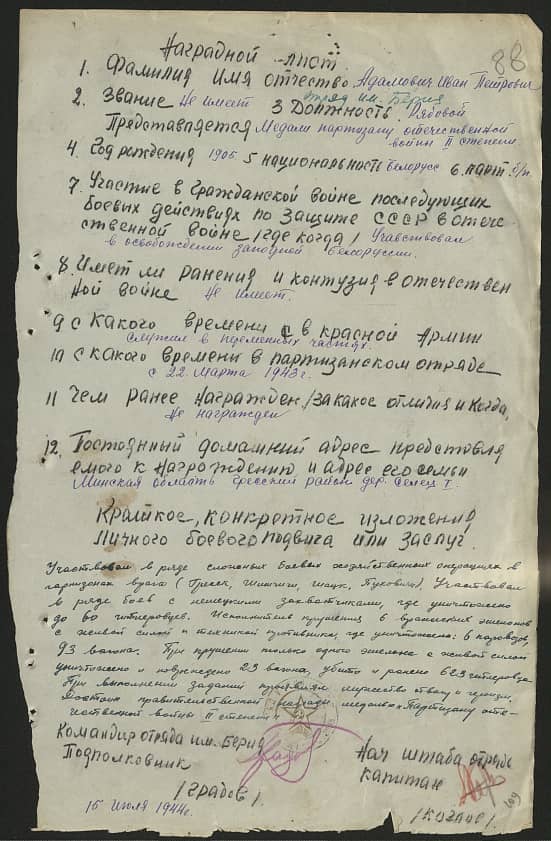 88
Наградной лист
1. Фамилия имя отчество Адамович Иван Петрович
2. Звание Не имеет 3 Должность Рядовой
отряд им. Берия
Представляется Медали партизану отечественной
войны II степени
4. Год рождения 1905 5 национальность белорусс 6. парт б/п.
7. Участие в гражданской войне последующих
боевых действиях по защите СССР в отече-
ственной войне /где когда/ Учавствовал
в освобождении западной Белоруссии.
8. Имет ли ранения и контузия в отечествен
ной войне Не имеет.
9 с какого времени в красной Армии
служил в переменных частях.
10 с какого времени в партизанском отряде
с 22. Марта 1943 г.
11 Чем ранее награжден /за какое отличия и когда,
Не награжден
12. Постоянный домашний адрес представля
емого к награждению и адрес его семьи
Минская область гресский район дер. Селец I.
Краткое, конкретное изложения
личного боевого подвига или заслуг
Участвовал в ряде сложных боевых хозяйственных операциях в
гарнизонах врага (Гресск, Шищичи, Шацк, Пуховичи). Участвовал
в ряде боев с немецкими захватчиками, где уничтожено
до 60 гитлеровцев. Исполнитель крушения 6 вражеских эшелонов
с живой силой и техникой противника, где уничтожено: 6 паровозов,
93 вагона. При крушении только одного эшелона с живой силой
уничтожено и повреждено 23 вагона, убито и ранено 623 гитлеровца.
При выполнении заданий проявлял мужество отвагу и героизм.
Достоин правительственной награды медалью "Партизану оте-
чественной войны II степени"
Командир отряда им. Берия
Подполковник
/Градов/.
Нач штаба отряда
капитан
15 июля 1944 г.
109